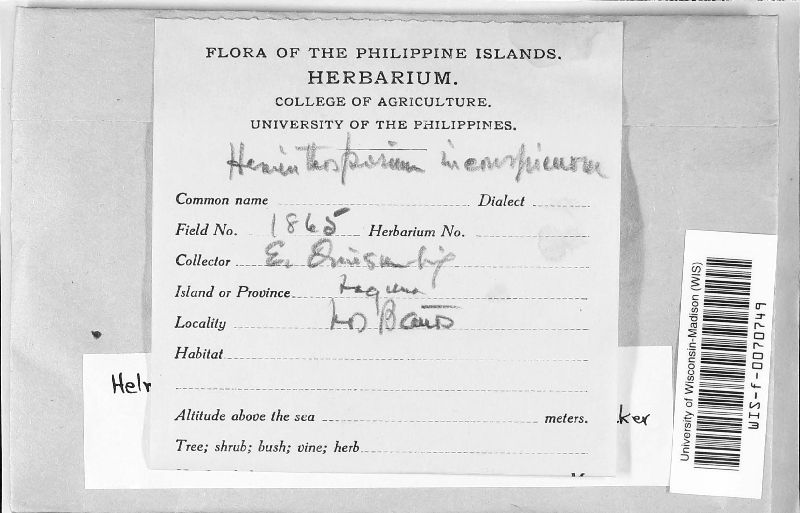 FLORA OF THE PHILIPPINE ISLANDS.
HERBARIUM.
COLLEGE OF AGRICULTURE.
UNIVERSITY OF THE PHILIPPINES.
Helminthosporium inconspicuum
Common name Dialect
Field No. 1865 Herbarium No.
Collector E. Quisumbing
Island or Province Laguna
Locality Los Baños
Habitat
Altitude above the sea meters.
Tree; shrub; bush; vine; herb
Helm
ker
University of Wisconsin-Madison (WIS)
WIS-f-0070749